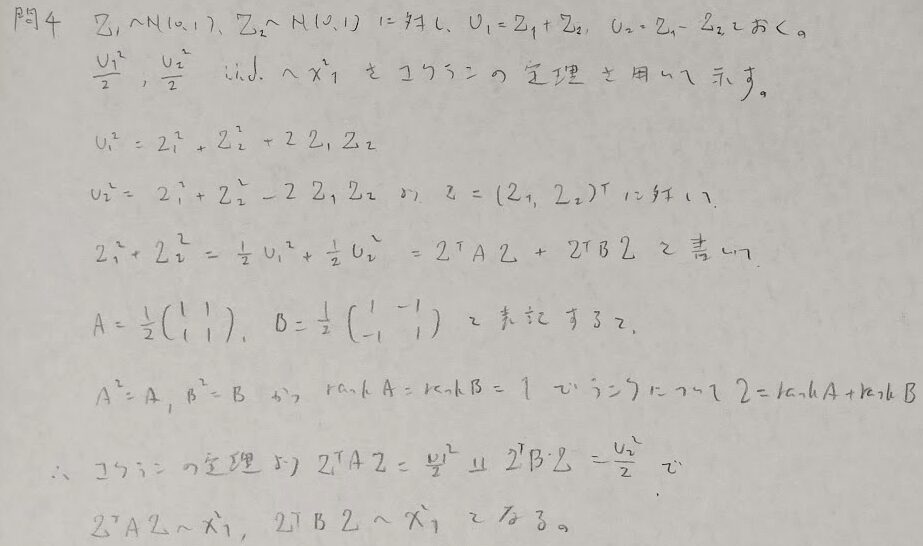 問4 Z₁~N(0,1), Z₂~N(0,1) に対し、U₁=Z₁+Z₂, U₂=Z₁-Z₂とおく。
U₁²/2, U₂²/2 i.i.d. ~ χ²₁ をコクランの定理を用いて示す。
U₁² = Z₁² + Z₂² + 2Z₁Z₂
U₂² = Z₁² + Z₂² - 2Z₁Z₂ より Z = (Z₁, Z₂)ᵀ に対して
Z₁² + Z₂² = 1/2 U₁² + 1/2 U₂² = ZᵀAZ + ZᵀBZ と書いて
A = 1/2 (1 1; 1 1), B = 1/2 (1 -1; -1 1) と表記すると、
A² = A, B² = B かつ rank A = rank B = 1 でランクについて 2 = rank A + rank B
∴ コクランの定理より ZᵀAZ = U₁²/2 ⫫ ZᵀBZ = U₂²/2 で
ZᵀAZ ~ χ²₁, ZᵀBZ ~ χ²₁ となる。